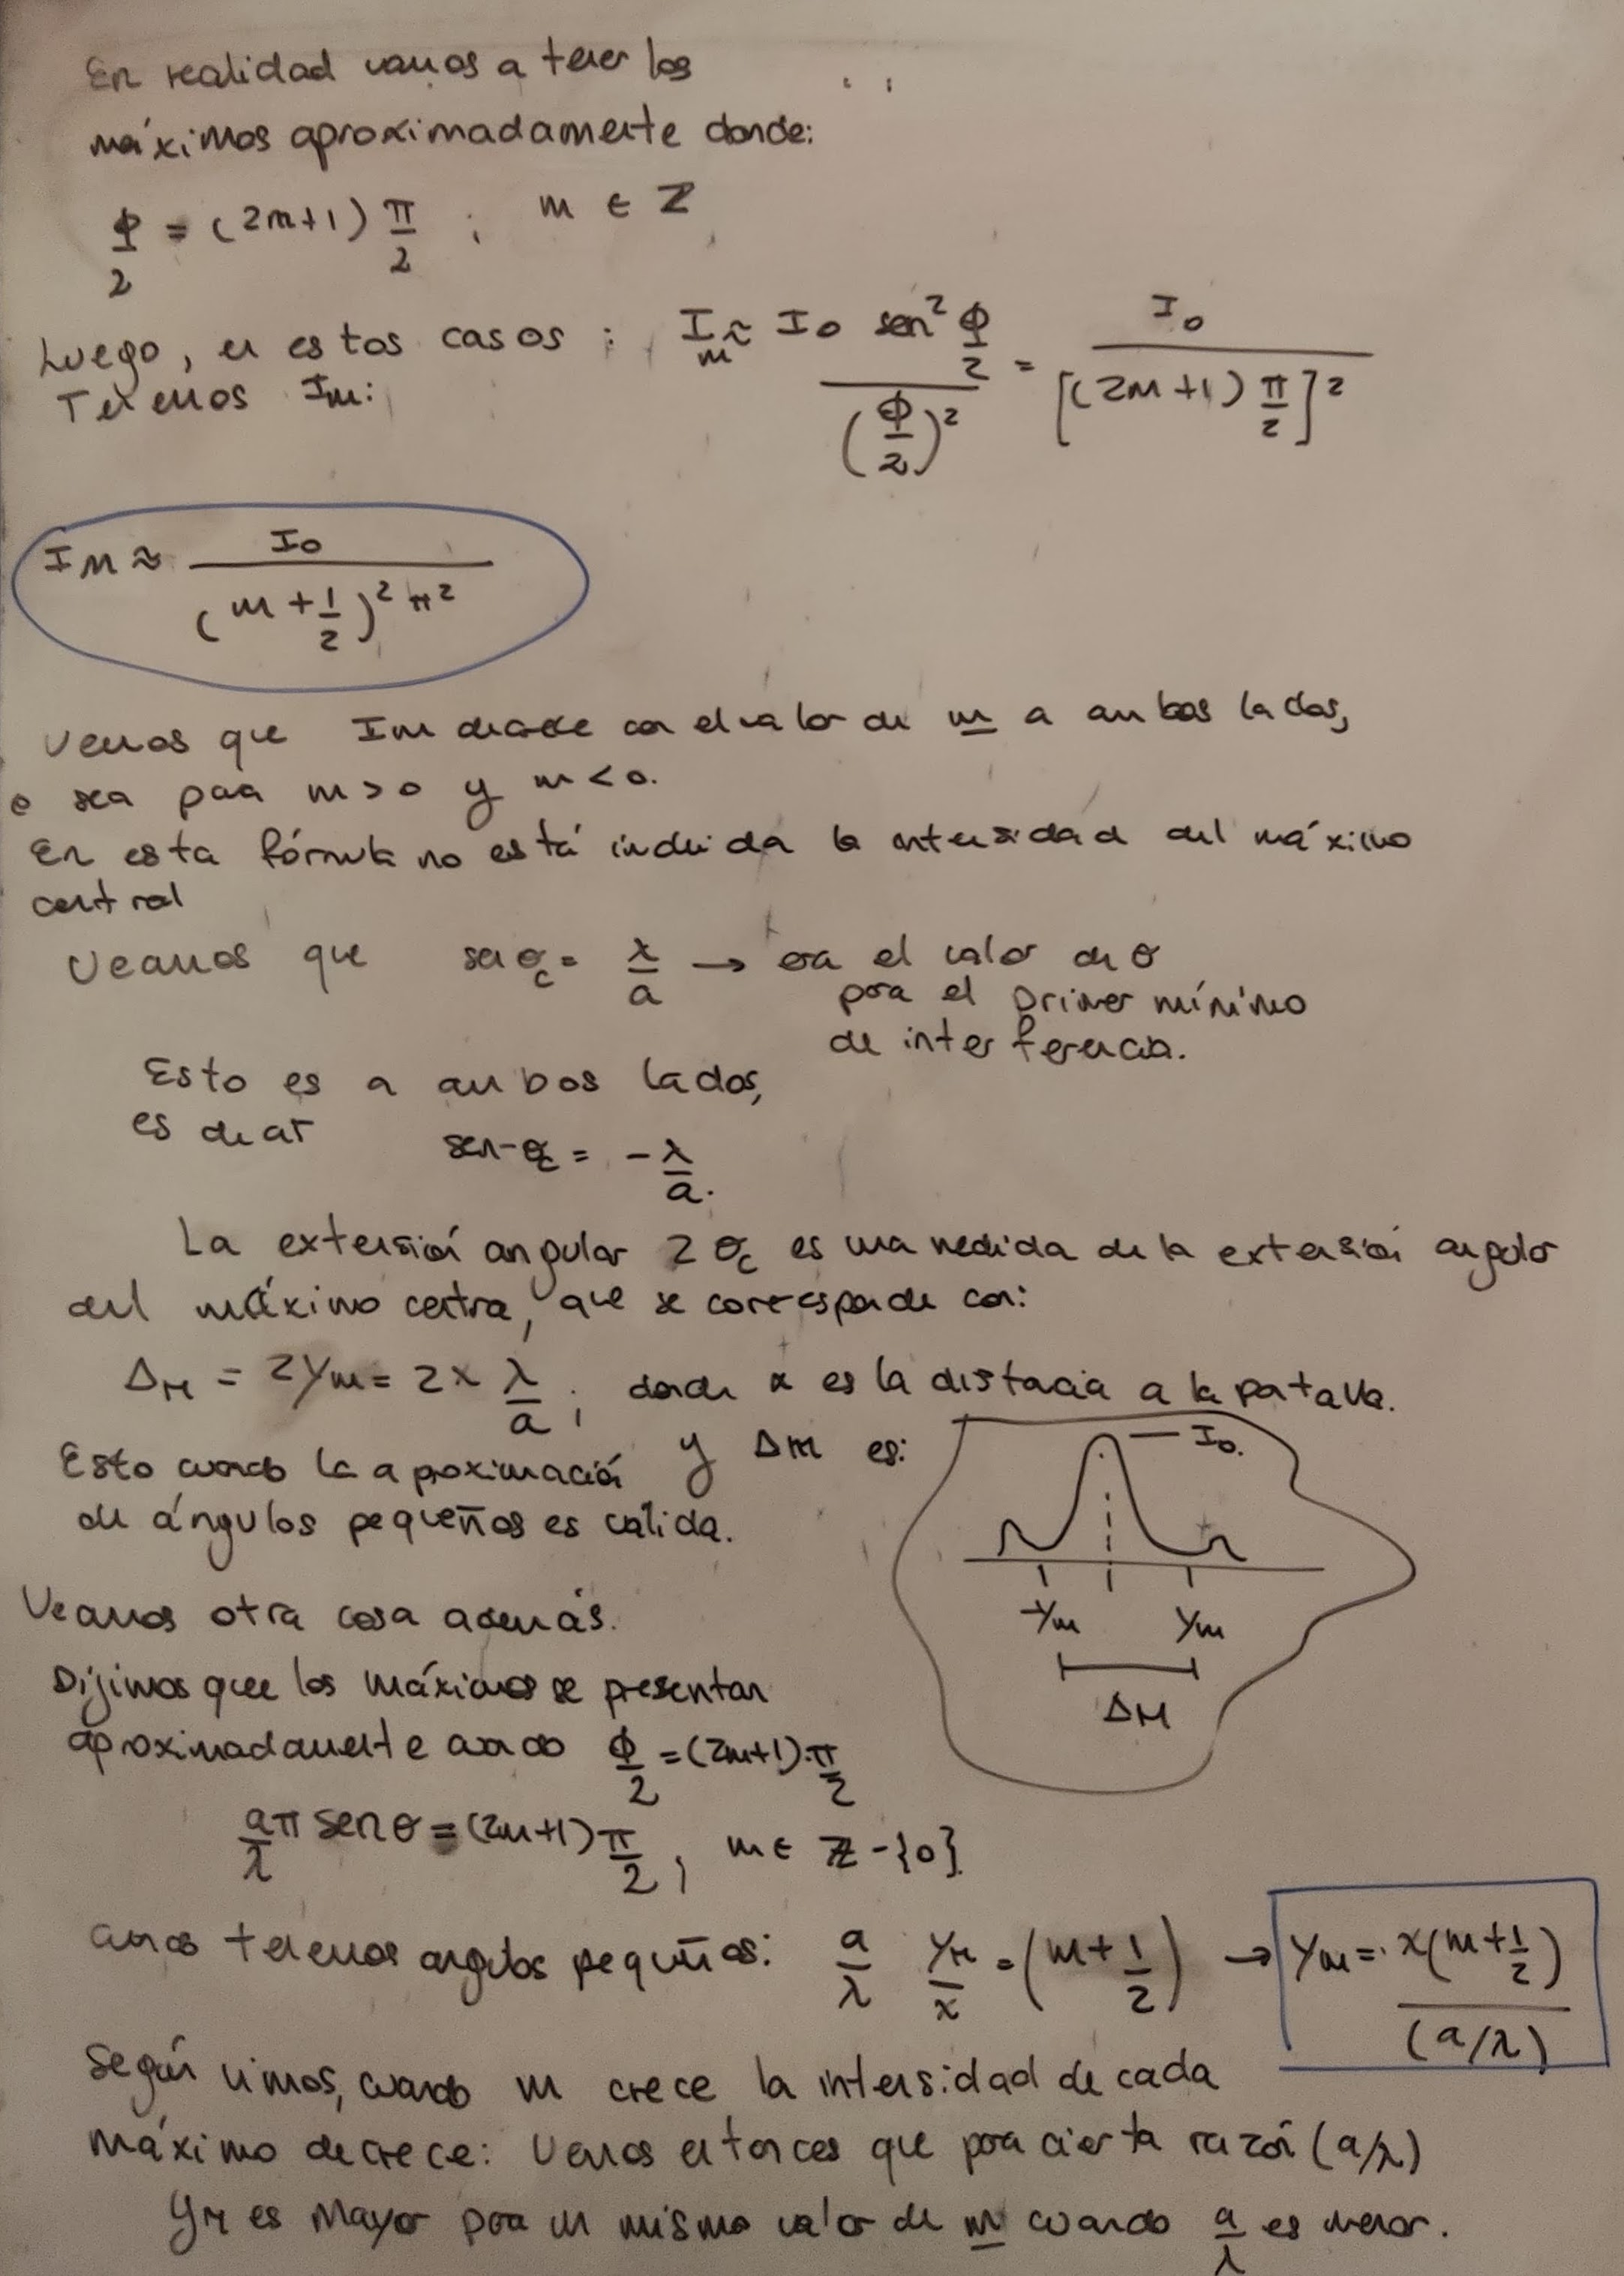 En realidad vamos a tener los
máximos aproximadamente donde:
Φ/2 = (2m+1) π/2 ; m ∈ Z
Luego, en estos casos : Im ≈ I0 sen² Φ/2 / (Φ/2)² = I0 / [(2m+1) π/2]²
Tenemos Im:
Im ≈ I0 / (m + 1/2)² π²
Vemos que Im decrece con el valor de m a ambos lados,
o sea para m > 0 y m < 0.
En esta fórmula no está incluida la intensidad del máximo
central
Veamos que sen θc = λ/a → era el valor de θ
para el primer mínimo
de interferencia.
Esto es a ambos lados,
es decir sen -θc = - λ/a.
La extensión angular 2 θc es una medida de la extensión angular
del máximo central, que se corresponde con:
ΔM = 2ym = 2x λ/a ; donde x es la distancia a la pantalla.
Esto cuando la aproximación y ΔM es:
de ángulos pequeños es válida.
I0.
-ym ym
ΔM
Veamos otra cosa además.
Dijimos que los máximos se presentan
aproximadamente cuando Φ/2 = (2m+1).π/2
a/λ π sen θ = (2m+1) π/2 , m ∈ Z - {0}
cuando tenemos angulos pequeños: a/λ yM/x = (m + 1/2) → ym = x(m + 1/2) / (a/λ)
Según vimos, cuando m crece la intensidad de cada
máximo decrece: Vemos entonces que para cierta razón (a/λ)
yM es Mayor para un mismo valor de m cuando a/λ es menor.